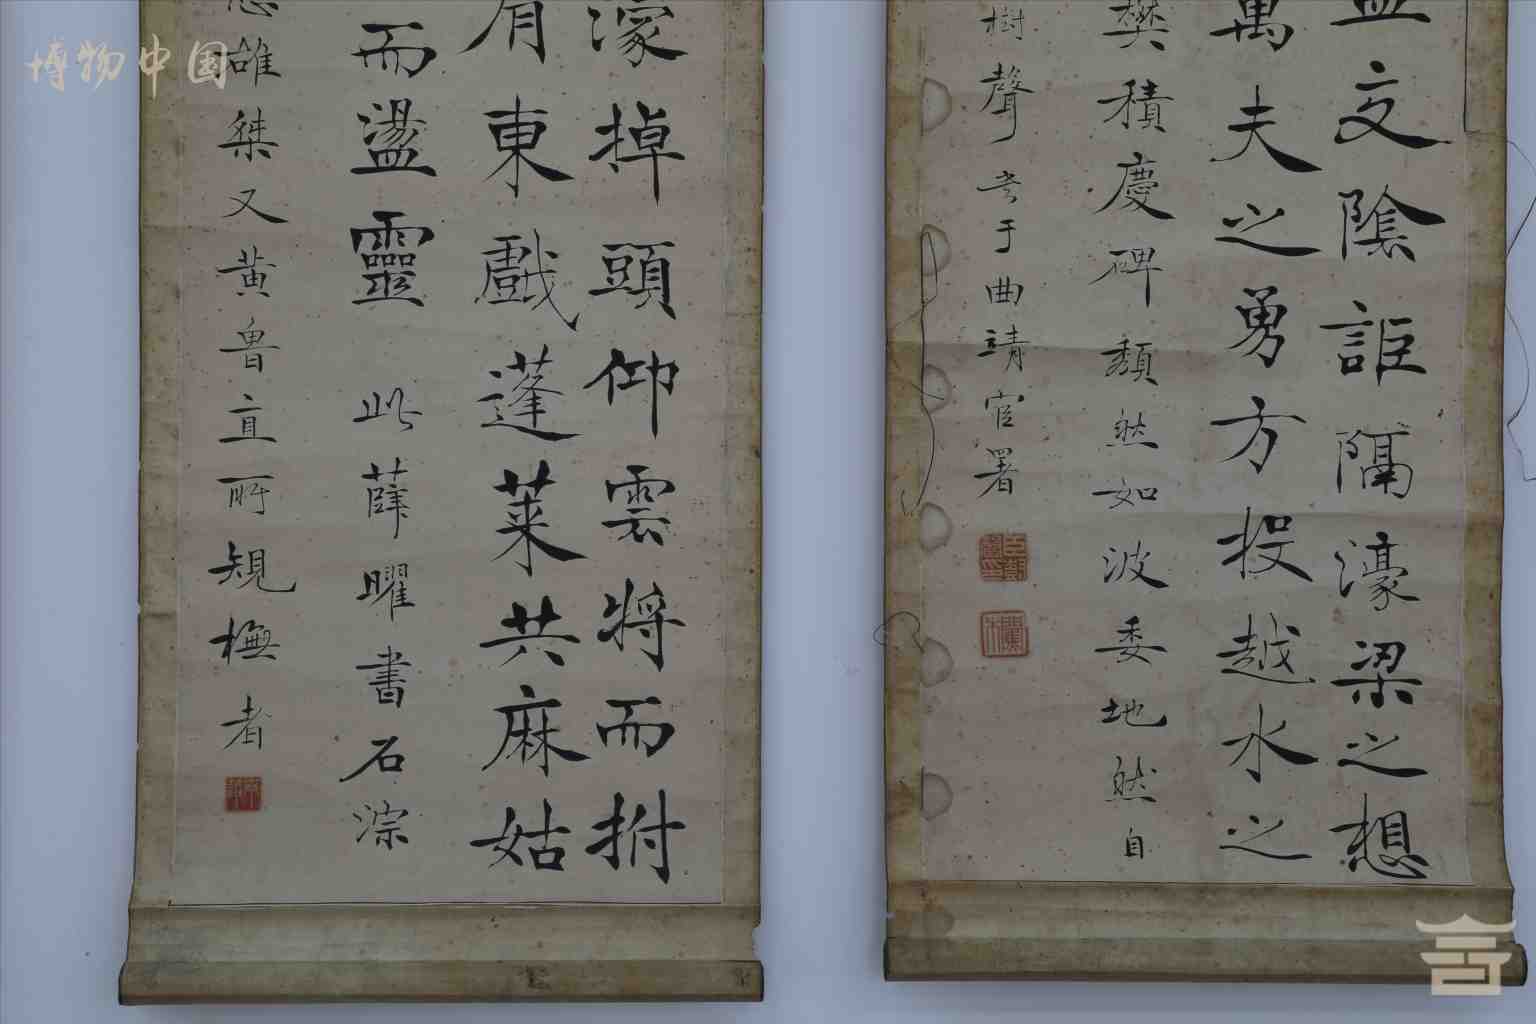 博物中国
盂文陰詎隔濠梁之想
萬夫之勇方投越水之
樊積慶碑頹然如波委地然自
樹聲書于曲靖官署
濠掉頭仰雲將而拊
肩東戲蓬萊共麻姑
而盪靈
此薛曜書石淙
雄桀又黃魯直所規橅者